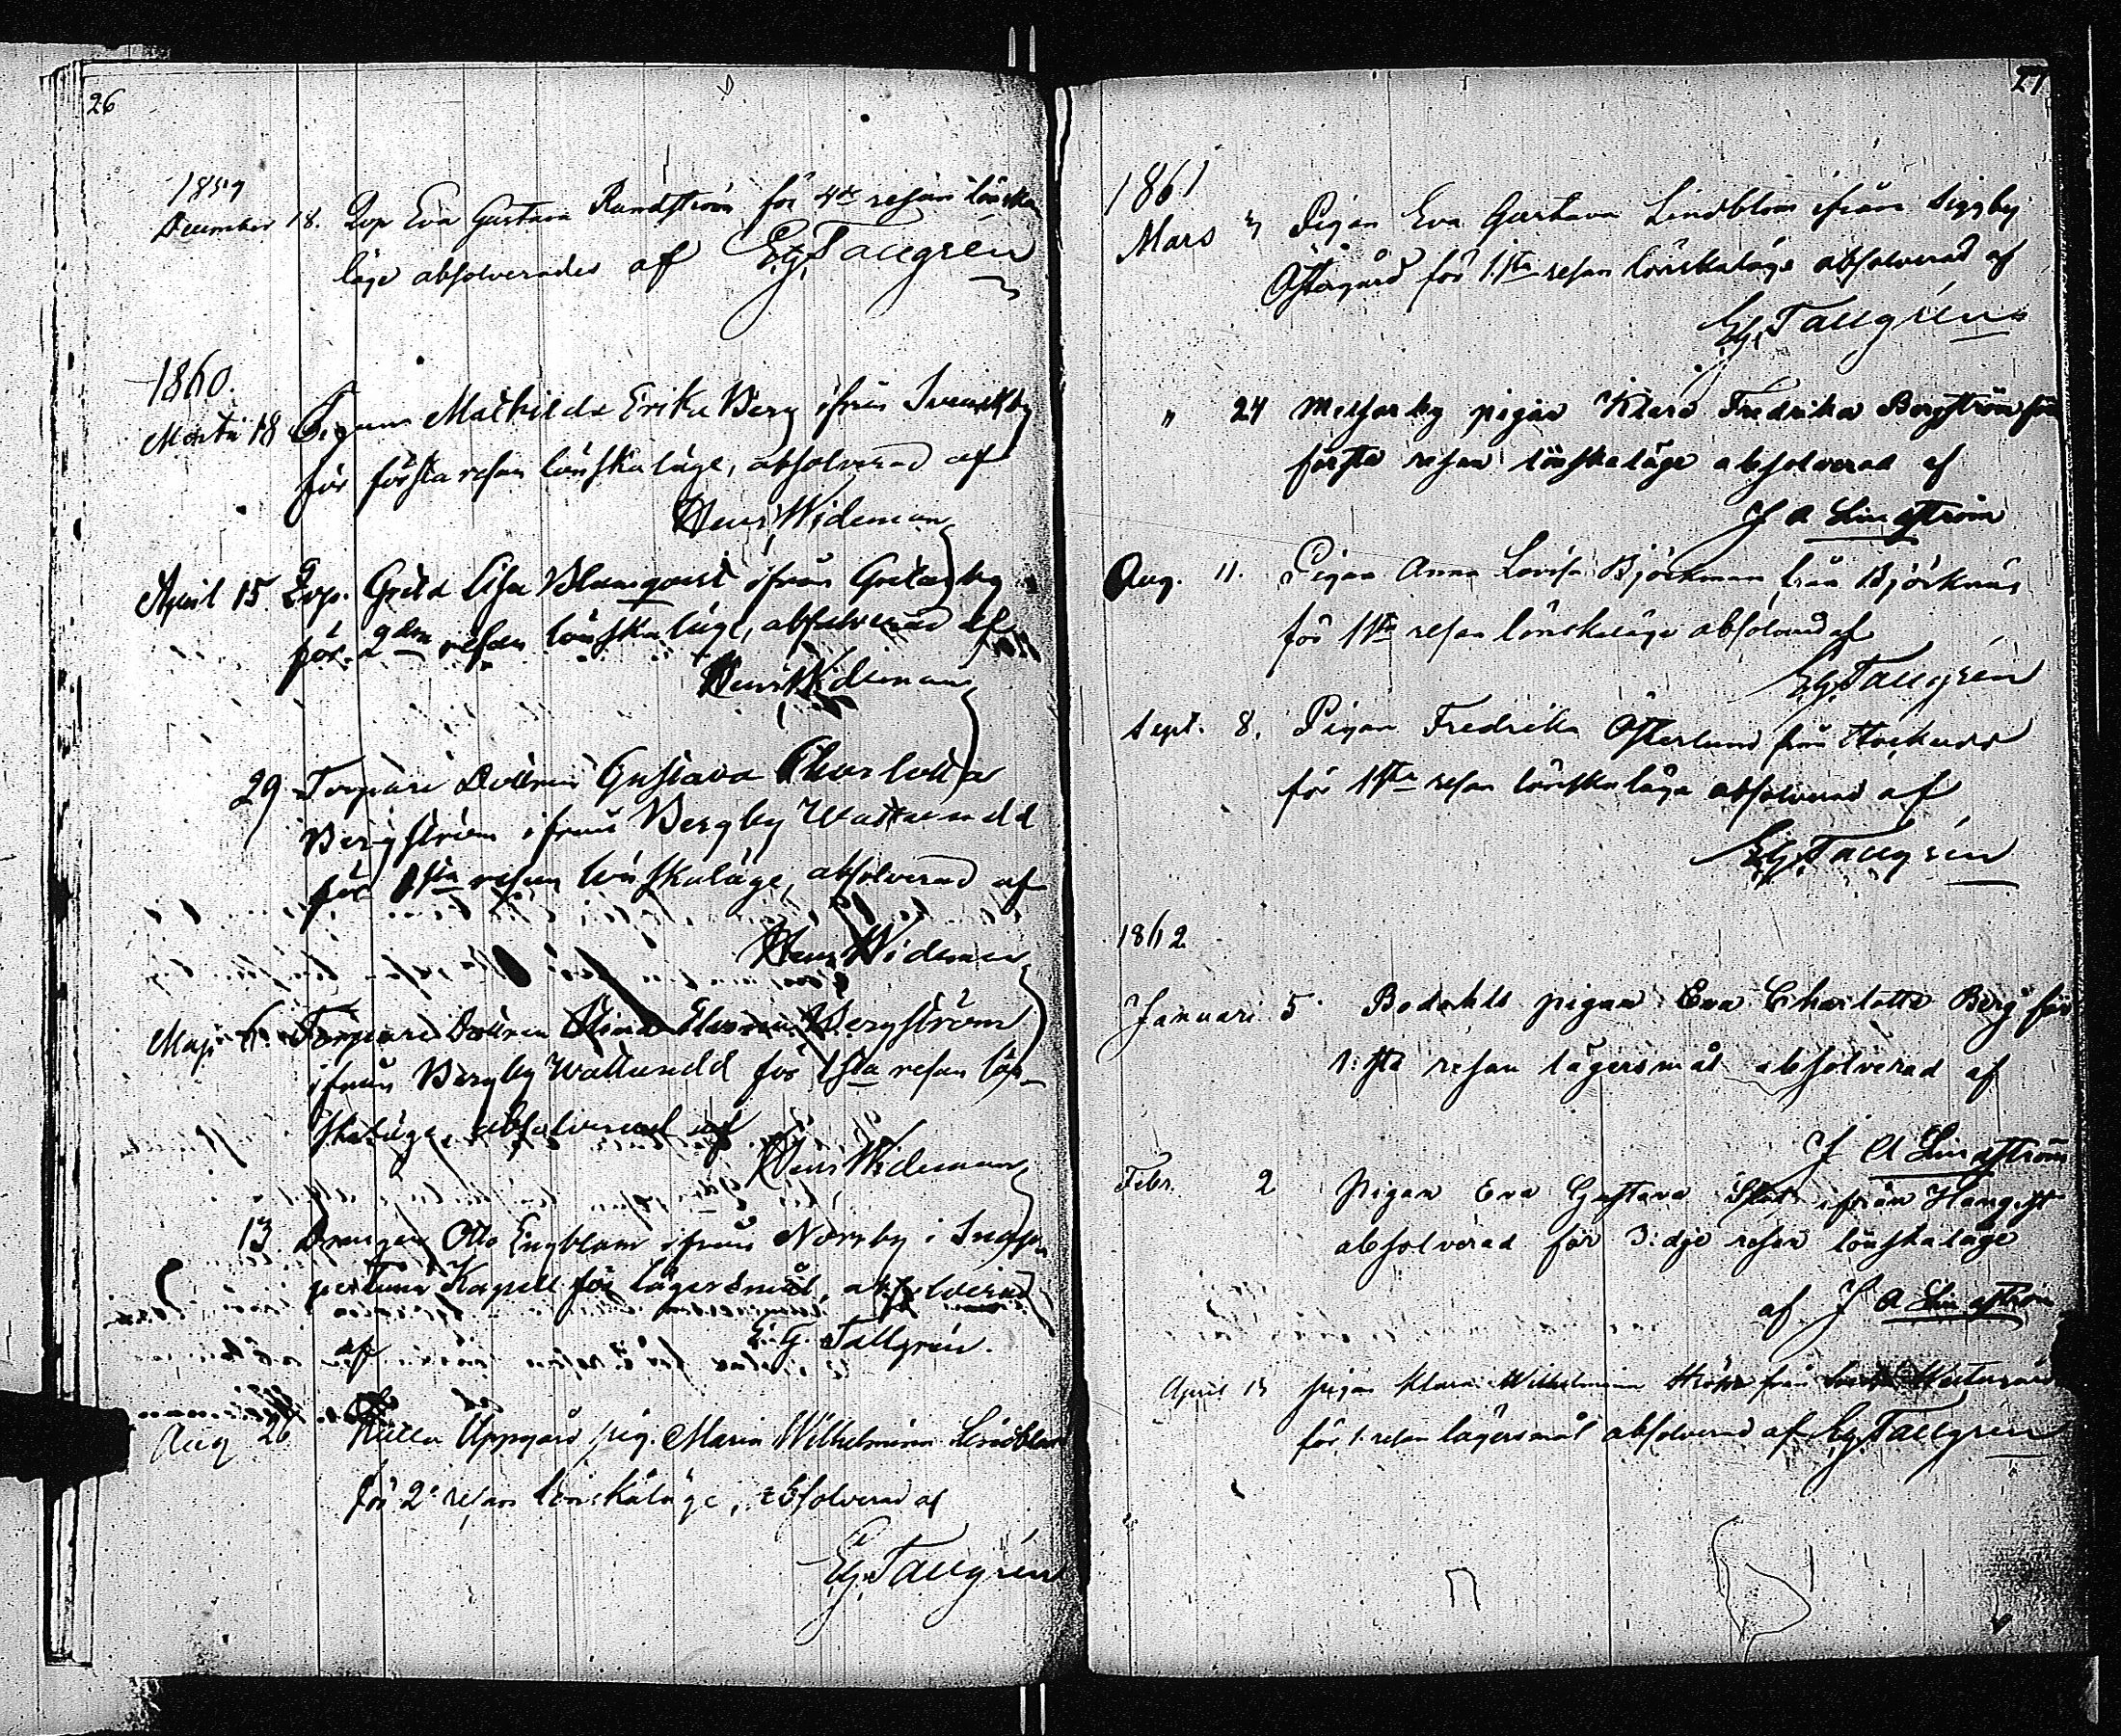 26
1859
December 18. Qvp Eva Gustava Randström för 4de resan lönska
läge absolverades af EG. Tallgrén
1860.
Martii 18 Pigan Mathilda Erika Berg ifrån Svenskby
för första resan lönskaläge, absolverad af
Henr. Wideman
April 15 Qvp. Greta Lisa Blomqvist ifrån Gretarby
för 2dra resan lönskaläge, absolverad af
Henr. Wideman
29 Torpare Dottren Gustava Charlotta
Bergström ifrån Bergby
för 1sta resan lönskaläge, absolverad af
Henr. Wideman
Maji 6. Torpare Dottren Bergström
ifrån Bergby för 1sta resan lön-
skaläge, absolverad af
Henr Wideman
13 Drengen Otto Engblom ifrån Norrby i Snap
pertuna Kapell för lägersmål, absolverad
af E. G. Tallgrén.
Aug 26 Uppgård pig. Maria Wilhelmina Lindblom
för 2a resan lönskaläge, absolverad af
EG. Tallgrén
27
1861
Mars 3 Pigan Eva Gustava Lindblom ifrån Siggby
Östergård för 1:sta resan lönskaläge absolverad af
EG. Tallgrén
" 24 pigan Klara Fredrika Bergström för
första resan lönskaläge absolverad af
J A Lindström
Aug. 11. Pigan Anna Lovisa Björkman från Björknäs
för 1sta resan lönskaläge absolverad af
EG. Tallgrén
Sept. 8. Pigan Fredrika Österlund från
för 1sta resan lönskaläge absolverad af
EG. Tallgrén
1862
Januari 5 pigan Eva Charlotta Berg för
1:sta resan lägersmål absolverad af
J A Lindström
Febr. 2 pigan Eva Gustava ifrån
absolverad för 3:dje resan lönskaläge
af J A Lindström
April pigan Klara Wilhelmina från
för 1. resan lägersmål absolverad af EG. Tallgrén